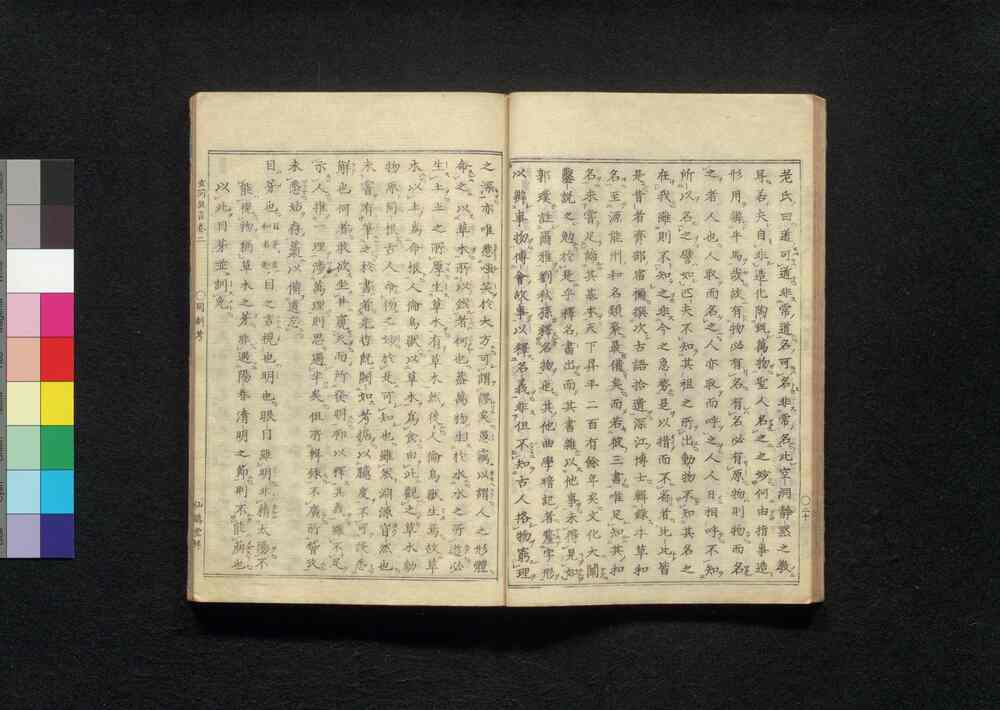 老氏曰道可道非常道名可名非常名此空洞静黙之教
耳若夫自非造化陶甄萬物聖人名之之妙何由指事造
形用舞牛馬哉故有物必有名有名必有原物則物而名
之者人也人取而名之人亦取而呼之人人日相呼不知
所以名之譬如匹夫不知其祖之所出動物不知其名之
在我雖則不知之非今之急務是以措而不省者比比皆
是昔者齊部宿禰撰次古語拾遺深江博士輯録本草和
名至源能州和名類聚最備矣而若彼三書唯足知其和
名未嘗足論其基本天下昇平二百有餘年矣文化大闡
鑿説之勉於是乎釋名書出而其書雜以他事未得見如
郭璞註爾雅劉熙釋名物也其他曲學暗記者鑿字形
以辨事物傅會故事以釋名義非但不知古人格物窮理
之深亦唯惹嗤笑於大方可謂謬矣愚竊以謂人之形體
命之以草木所以然者何也蓋萬物生於水水之所造必
生土土之所原生草木有草木然後人倫鳥獸生焉故草
木以土為命根人倫鳥獸以草木為食由此觀之草木動
物原同根古人命物之妙於是可知也雖然淵源宵然也
未嘗有筆之於書者竜也既闕如考據以臆度不可深悉
解也何者敢欲坐井窺天而所發明聊以釋其義雖不足
示人推一理渉萬理則思過半矣但所輯殊不廣所嘗攷
未悉姑存藁以備遺忘
目芽也
目之言視也明也眼目雖明非精太陽不
能視物猶草木之芽非遇陽春清明之節則不能萌也
以此目芽並訓免
○二十
○同訓考